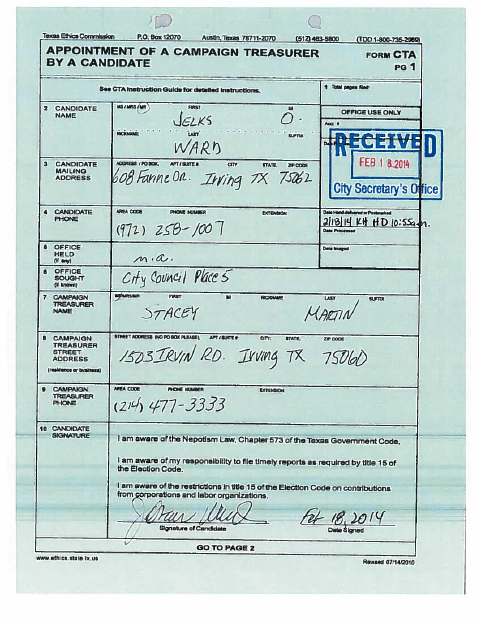 Texas Ethics Commission P.O. Box 12070 Austin, Texas 78711-2070 (512) 463-5800 (TDD 1-800-735-2989)
APPOINTMENT OF A CAMPAIGN TREASURER
BY A CANDIDATE
FORM CTA
PG 1
See CTA Instruction Guide for detailed instructions.
1 Total pages filed:
2 CANDIDATE NAME
MS / MRS / MR FIRST MI
JELKS O.
NICKNAME LAST SUFFIX
WARD
OFFICE USE ONLY
Acct. #
RECEIVED
FEB 18 2014
City Secretary's Office
3 CANDIDATE MAILING ADDRESS
ADDRESS / PO BOX, APT / SUITE # CITY STATE, ZIP CODE
608 Fannie Dr. Irving TX 75062
4 CANDIDATE PHONE
AREA CODE PHONE NUMBER EXTENSION
(972) 258-1007
Date Hand-delivered or Postmarked
2/18/14 KH HD 10:55am.
Date Processed
Date Imaged
5 OFFICE HELD (if any)
n.a.
6 OFFICE SOUGHT (if known)
City Council Place 5
7 CAMPAIGN TREASURER NAME
MS/MRS/MR FIRST MI NICKNAME LAST SUFFIX
STACEY MARTIN
8 CAMPAIGN TREASURER STREET ADDRESS (residence or business)
STREET ADDRESS (NO PO BOX PLEASE), APT / SUITE #: CITY: STATE, ZIP CODE
1503 IRVIN RD. Irving TX 75060
9 CAMPAIGN TREASURER PHONE
AREA CODE PHONE NUMBER EXTENSION
(214) 477-3333
10 CANDIDATE SIGNATURE
I am aware of the Nepotism Law, Chapter 573 of the Texas Government Code.
I am aware of my responsibility to file timely reports as required by title 15 of
the Election Code.
I am aware of the restrictions in title 15 of the Election Code on contributions
from corporations and labor organizations.
Feb 18, 2014
Signature of Candidate Date Signed
GO TO PAGE 2
www.ethics.state.tx.us Revised 07/14/2010